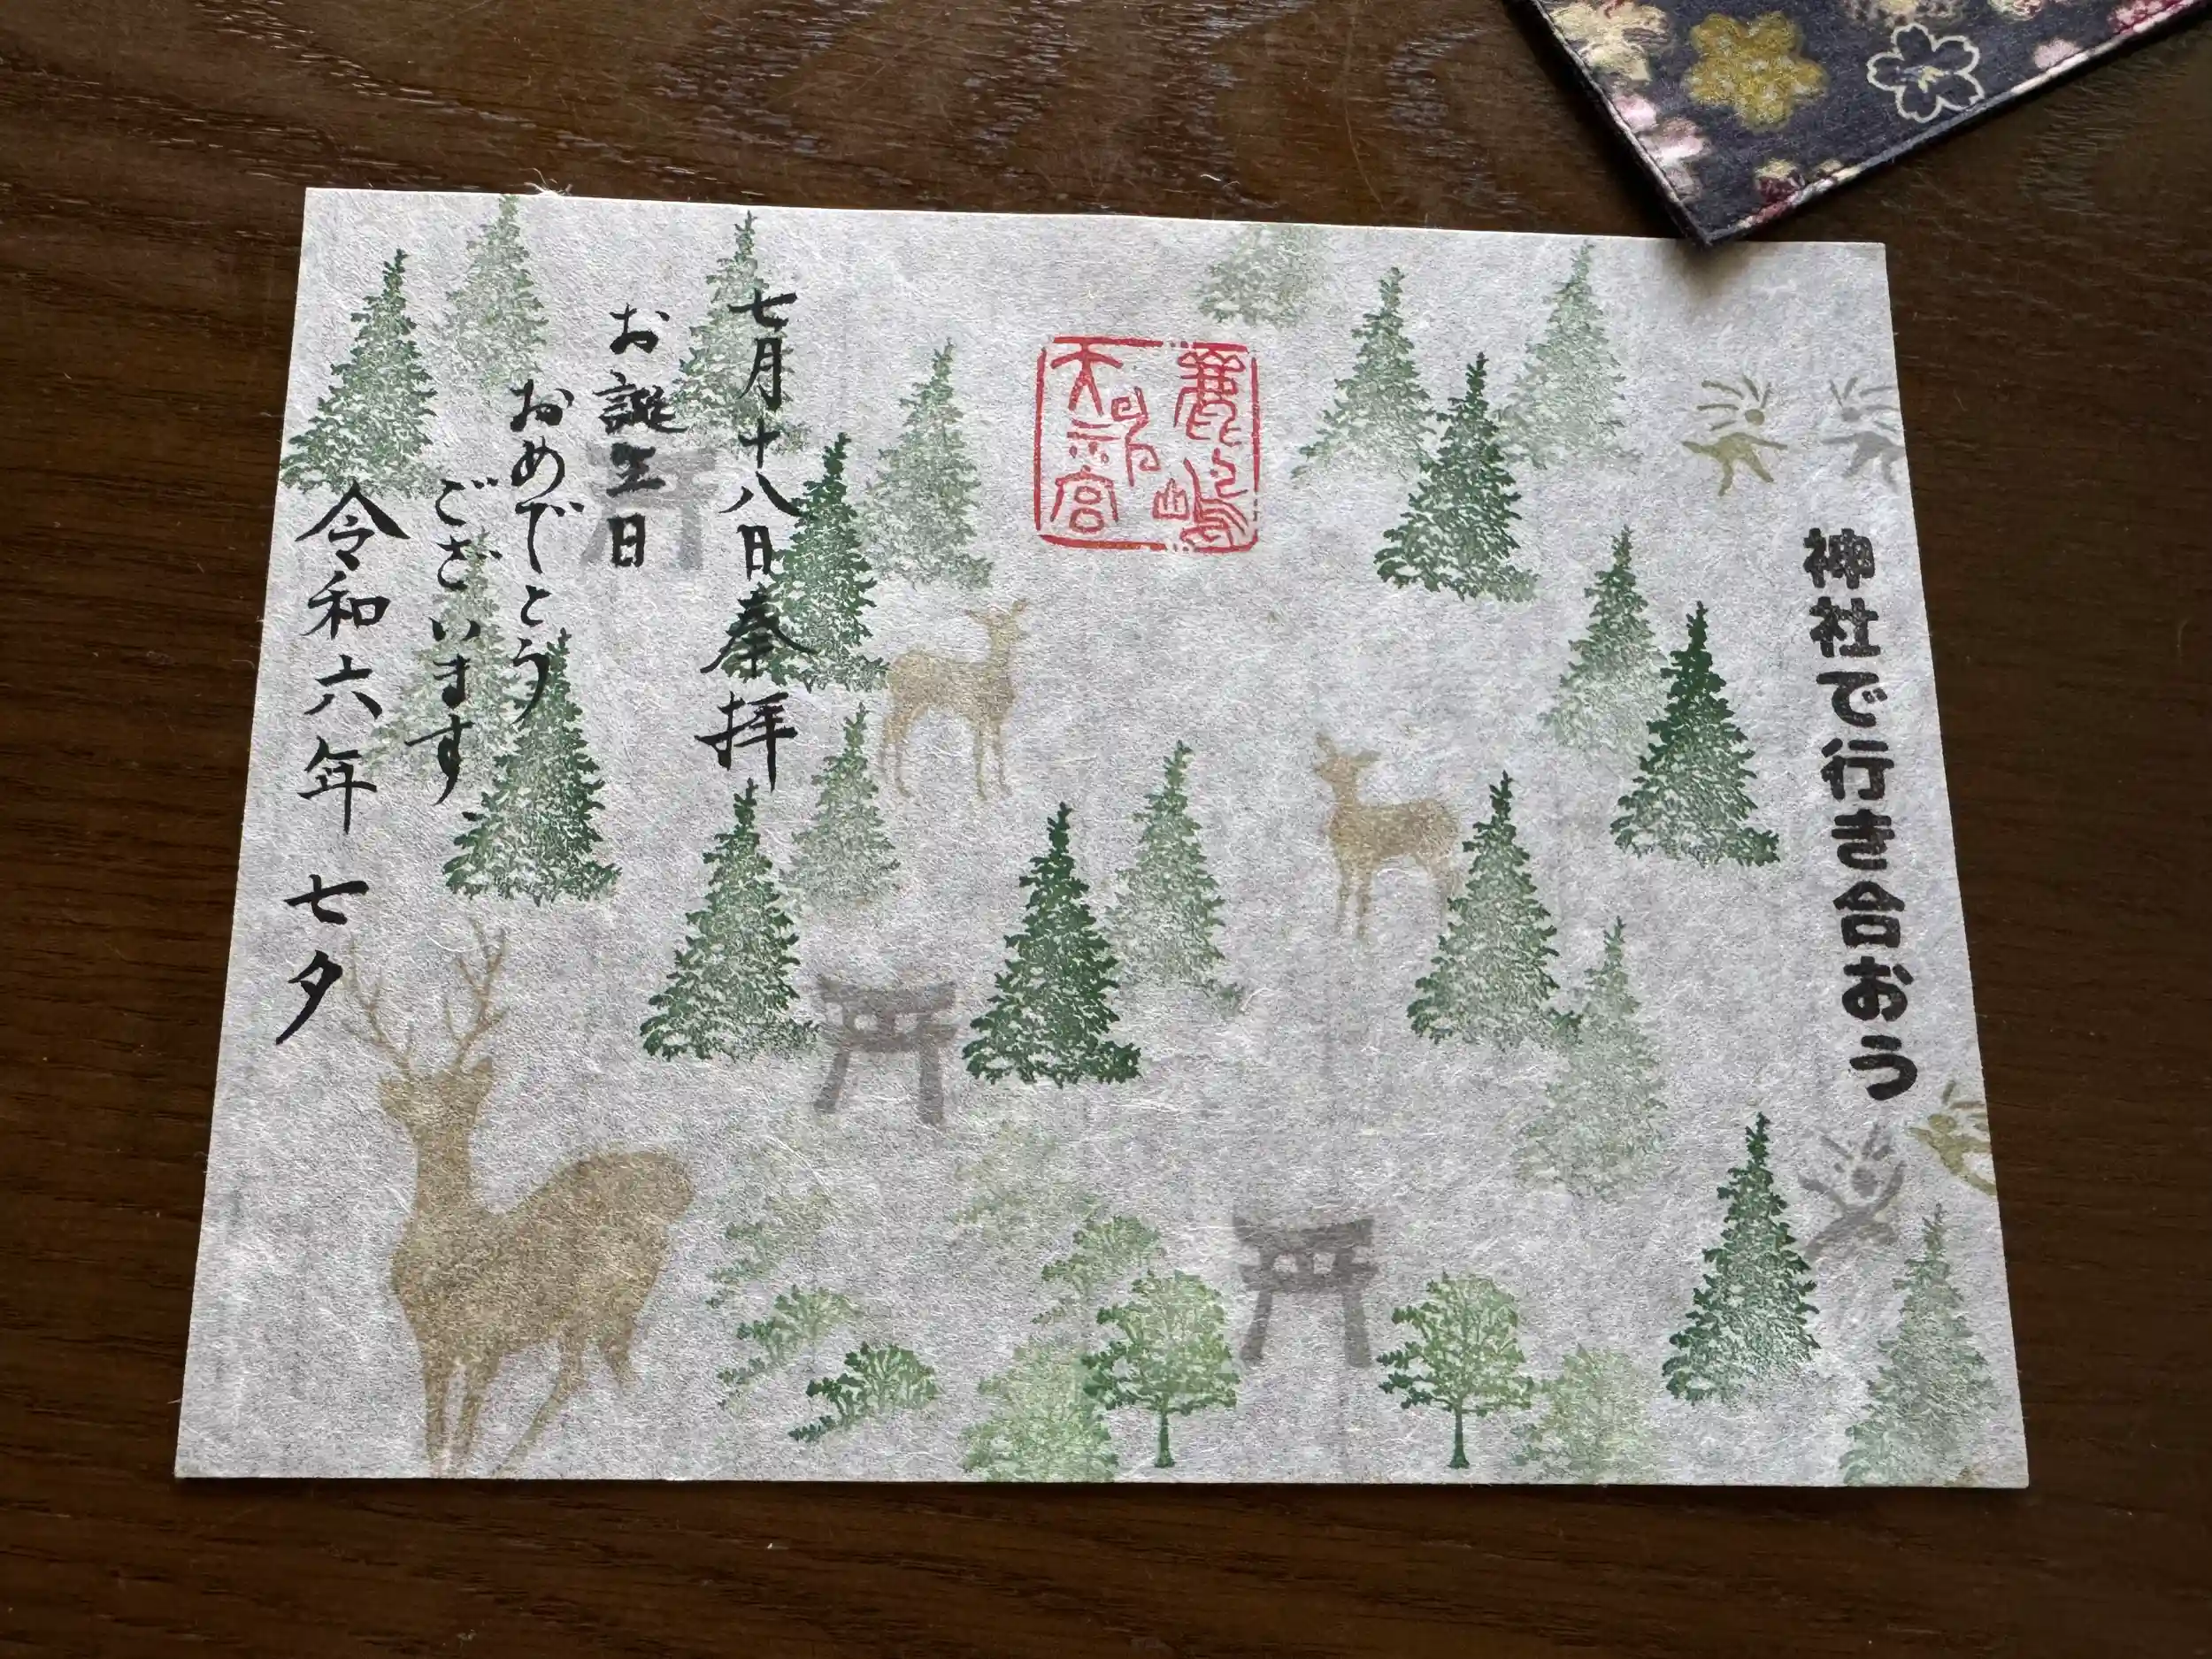 神社で行き合おう
鹿嶋
天足別
宮
七月十八日奉拝
お誕生日
おめでとう
ございます
令和六年 七夕